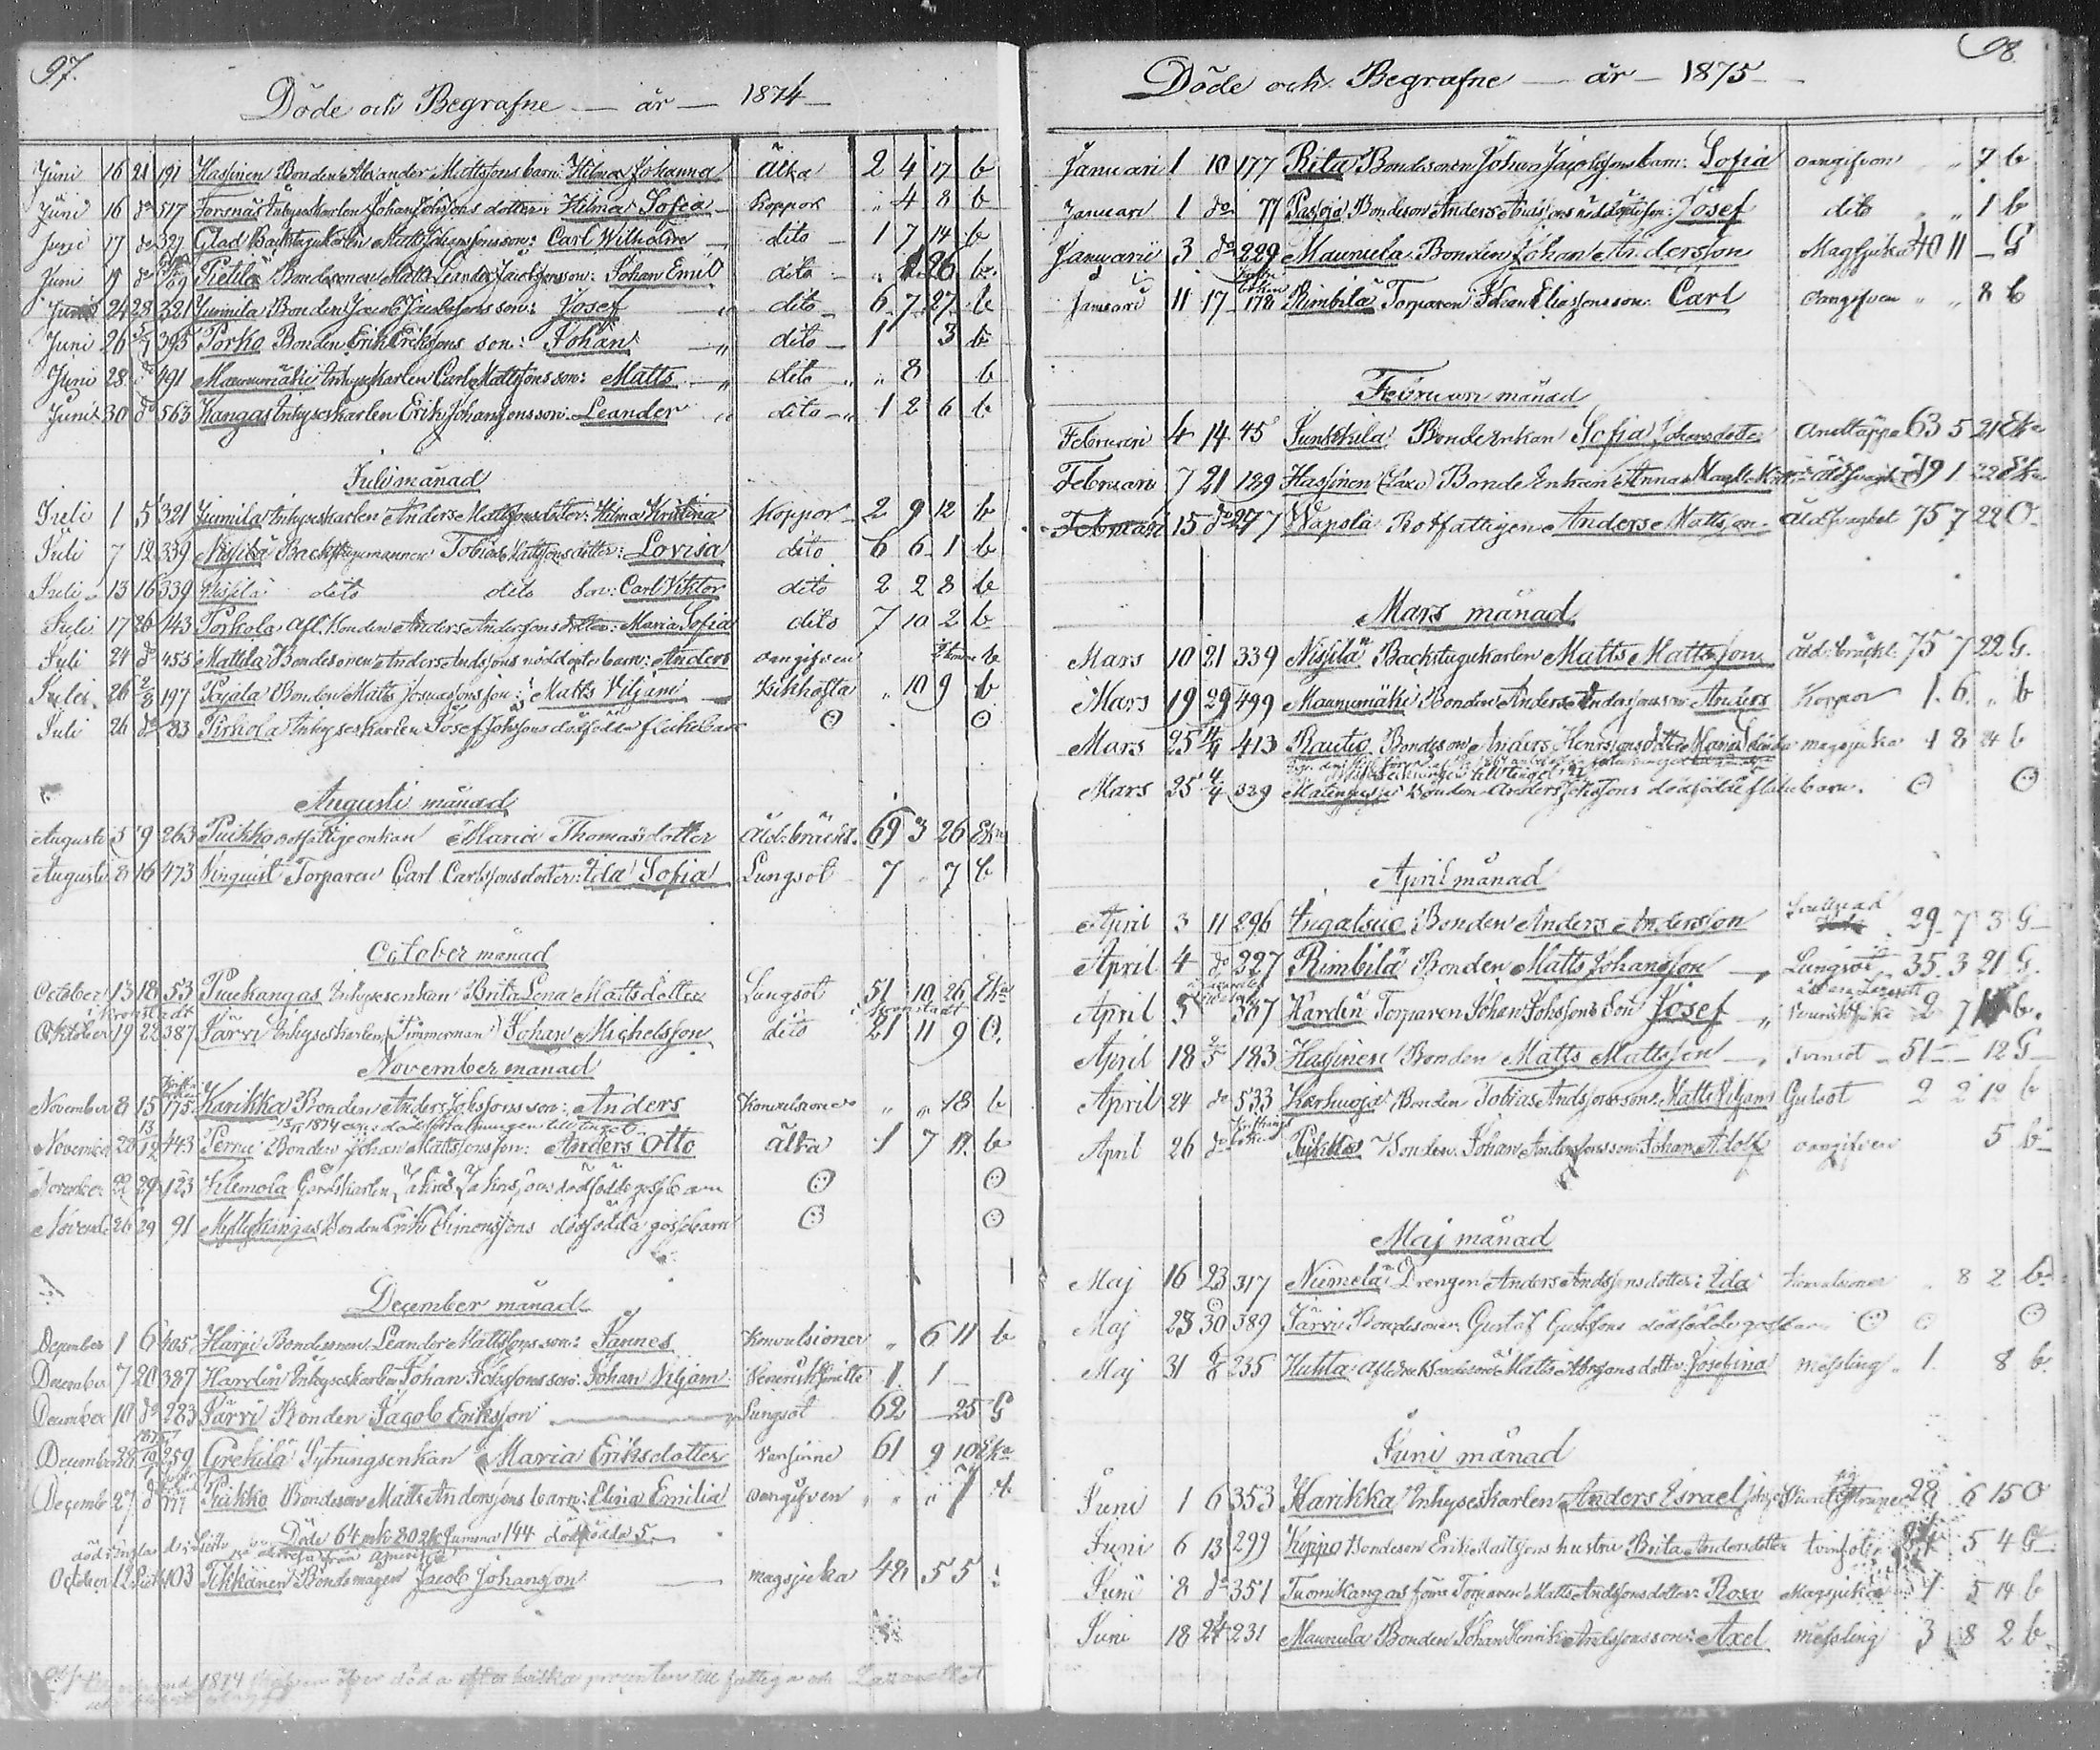 97.
Döde och Begrafne — år — 1874 —
Juni 16 21 191 Hassinen Bonden Alexander Mattssons barn: Hilma Johanna Älta 2 4 17 b
Juni 16 do 517 Forsnäs Inhyseskarlen Johan Johssons dotter: Hilma Sofia Koppor " 4 8 b
Juni 17 do 327 Glad Backstugukarlen Matts Johanssons son: Carl Wilhelm dito 1 7 14 b
Juni 19 do Pietilä Bondesonen Matts Leander Jacobssons son: Johan Emil dito 1 26 b
Juni 24 28 321 Junnila Bonden Jacob Jacobssons son: Josef dito 6 7 27 b
Juni 26 5/7 395 Porko Bonden Erik Erikssons son: Johan dito 1 3 b
Juni 28 do 491 Maunumäki Inhyseskarlen Carl Mattssons son: Matts dito " 8 b
Juni 30 do 563 Kangas Inhyseskarlen Erik Johanssons son: Leander dito 1 2 6 b
Juli månad
Juli 1 5 321 Junnila Inhyseskarlen Anders Mattssons dotter: Hilma Kristina Koppor 2 9 12 b
Juli 7 12 339 Nissilä Backstugumannen Tobias Mattssons dotter: Lovisa dito 6 6 1 b
Juli 13 16 339 Nissilä dito dito Son: Carl Viktor dito 2 2 8 b
Juli 17 26 143 Porkola afl. Bonden Anders Anderssons dotter: Maria Sofia dito 7 10 2 b
Juli 24 do 455 Mattila Bondesonen Anders Andssons nöddöpte barn: Anders oangifven b
Juli 26 2/8 197 Pajala Bonden Matts son: Matts Viljam Kikhosta " 10 9 b
Juli 26 do 83 Pirkola Inhyseskarlen Josef Johssons dödfödde flickebarn
Augusti månad
Augusti 5 9 263 Puikko rotfattigenkan Maria Thomasdotter Åld: bräckl. 69 3 26 Eka
Augusti 8 16 473 Ninquist Torparen Carl Carlssons dotter: Ida Sofia Lungsot 7 " 7 b
October månad
October 13 18 53 Puukangas Inhysesenkan Brita Lena Mattsdotter Lungsot 51 10 26 Eka
i Kronstadt Kronstadt
Oktober 19 22 387 Järvi Inhyseskarlen (Timmerman) Johan Michelsson dito 21 11 9 O.
November månad
November 8 15 175 Karikka Bonden Anders Johssons son: Anders Konvulsioner " " 18 b
November 22 13/12 443 Pernu Bonden Johan Mattssons son: Anders Otto älta 1 7 11 b
November 22 29 123 Klemola Gårdskarlen dödfödde gossebarn
November 26 29 91 Myllykangas Bonden Erik Simonssons dödfödda gossebarn
December månad
December 1 6 405 Harju Bondesonen Leander Mattssons son: Jannes Konvulsioner " 6 11 b
December 7 20 387 Hardin Inhyseskarlen Johan Johssons son: Johan Viljam Venerisk 1 1
December 10 do 283 Järvi Bonden Jacob Eriksson Lungsot 62 — 25 G
December 28 259 Grekilä Sytningsenkan Maria Eriksdotter 61 9 10 Eka
December 27 do 177 Puikko Bondeson Matts Anderssons barn: Elina Emilia oangifven " " 7
Döde 64 Summa 144 dödfödde 5
October 12 403 Tikkanen Bondemågen Jacob Johansson magsjuka 48 5 5
98.
Döde och Begrafne — år — 1875 —
Januari 1 10 177 Rita Bondesonen Johan Jacobssons barn: Sofia oangifven " " 7 b
Januari 1 do 77 Pasoja Bondeson Anders Andssons nöddöpte son: Josef dito " " 1 b
Januari 3 do 229 Maunula Bonden Johan Andersson Magsjuka 40 11 — G
Januari 11 17 178 Rimbilä Torparen Johan Eliassons son: Carl oangifven " " 8 b
Februari månad
Februari 4 14 45 Junkkila Bonde Enkan Sofia Johansdotter Andtäppa 63 5 21 Eka
Februari 7 21 189 Hassinen Bonde Enkan Anna 79 1 22 Eka
Februari 15 do 277 Wapola Rotfattigen Anders Mattsson Åldsvaghet 75 7 22 O
Mars månad
Mars 10 21 339 Nissilä Backstugukarlen Matts Mattsson åld: bräckl. 75 7 22 G.
Mars 19 29 499 Maunumäki Bonden Anders Anderssons son Anders Koppor 1 6 " b
Mars 25 4/4 413 Rautio Bondeson Anders Henrikssons dotter Maria magsjuka 1 8 24 b
Mars 25 4/4 329 Bonden Anders Johssons dödfödde flickebarn.
April månad
April 3 11 296 Ingalsuo Bonden Anders Andersson 29 7 3 G
April 4 do 227 Rimbilä Bonden Matts Johansson Lungsot 35 3 21 G.
April 5 387 Hardin Torparen Johan Johssons Son Josef Venerisk sjuka 2 7 b.
April 18 2/5 183 Hassinen Bonden Matts Mattsson tvinsot 51 — 12 G
April 24 do 533 Karhuoja Bonden Tobias Andssons son: Matts Viljam Gulsot 2 2 12 b
April 26 do Bonden Johan Anderssons son: Johan Adolf oangifven 5 b
Maj månad
Maj 16 23 317 Niemelä Drengen Anders Andssons dotter: Ida Konvulsioner 8 2 b
Maj 23 30 389 Järvi Bondesonen Gustaf Gustfsons dödfödde gossebarn
Maj 31 6/6 235 Huhta aflidne Bondeson Matts dotter Josefina Messling 1 8 b.
Juni månad
Juni 1 6 353 Karikka Inhyseskarlen Anders Israel 28 6 15 O
Juni 6 13 299 Koppo Bondeson Erik Mattssons hustru Brita Andersdotter tvinsot 5 4 G
Juni 8 do 351 Tuomikangas förra Torparen Matts Andssons dotter: Rosa Magsjuka 1 5 14 b
Juni 18 24 231 Maunula Bonden Johan Henrik Andssons son: Axel Messling 3 8 2 b